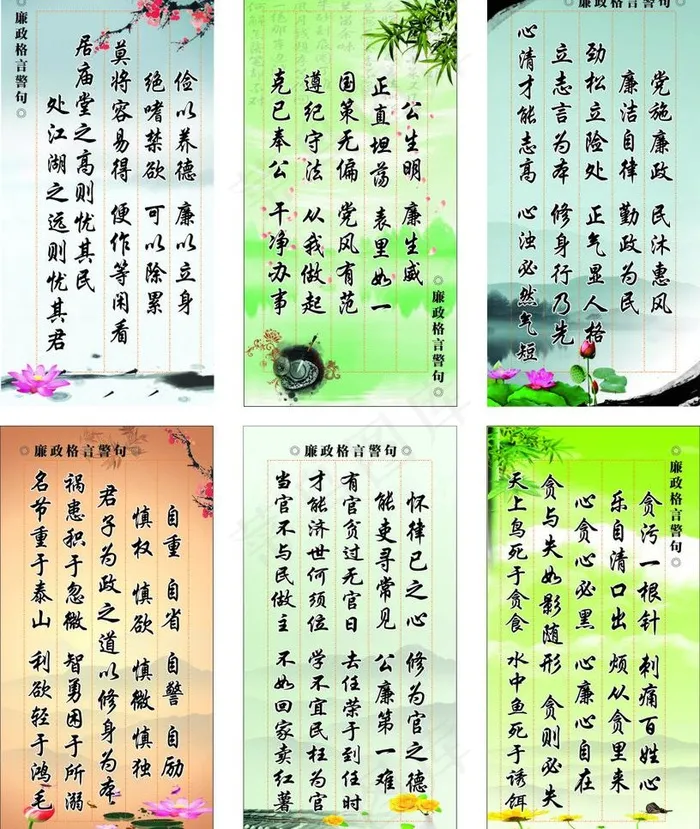 廉政格言警句
俭以养德 廉以立身
绝嗜禁欲 可以除累
莫将容易得 便作等闲看
居庙堂之高则忧其民
处江湖之远则忧其君
公生明 廉生威
正直坦荡 表里如一
国策无偏 党风有范
遵纪守法 从我做起
克已奉公 干净办事
廉政格言警句
廉政格言警句
党施廉政 民沐惠风
廉洁自律 勤政为民
劲松立险处 正气显人格
立志言为本 修身行乃先
心清才能志高 心浊必然气短
廉政格言警句
自重 自省 自警 自励
慎权 慎欲 慎微 慎独
君子为政之道以修身为本
祸患积于忽微 智勇困于所溺
名节重于泰山 利欲轻于鸿毛
廉政格言警句
怀律已之心 修为官之德
能吏寻常见 公廉第一难
有官贫过无官日 去任荣于到任时
才能济世何须位 学不宜民枉为官
当官不与民做主 不如回家卖红薯
廉政格言警句
贪污一根针 刺痛百姓心
乐自清口出 烦从贪里来
心贪心必黑 心廉心自在
贪与失如影随形 贪则必失
天上鸟死于贪食 水中鱼死于诱饵